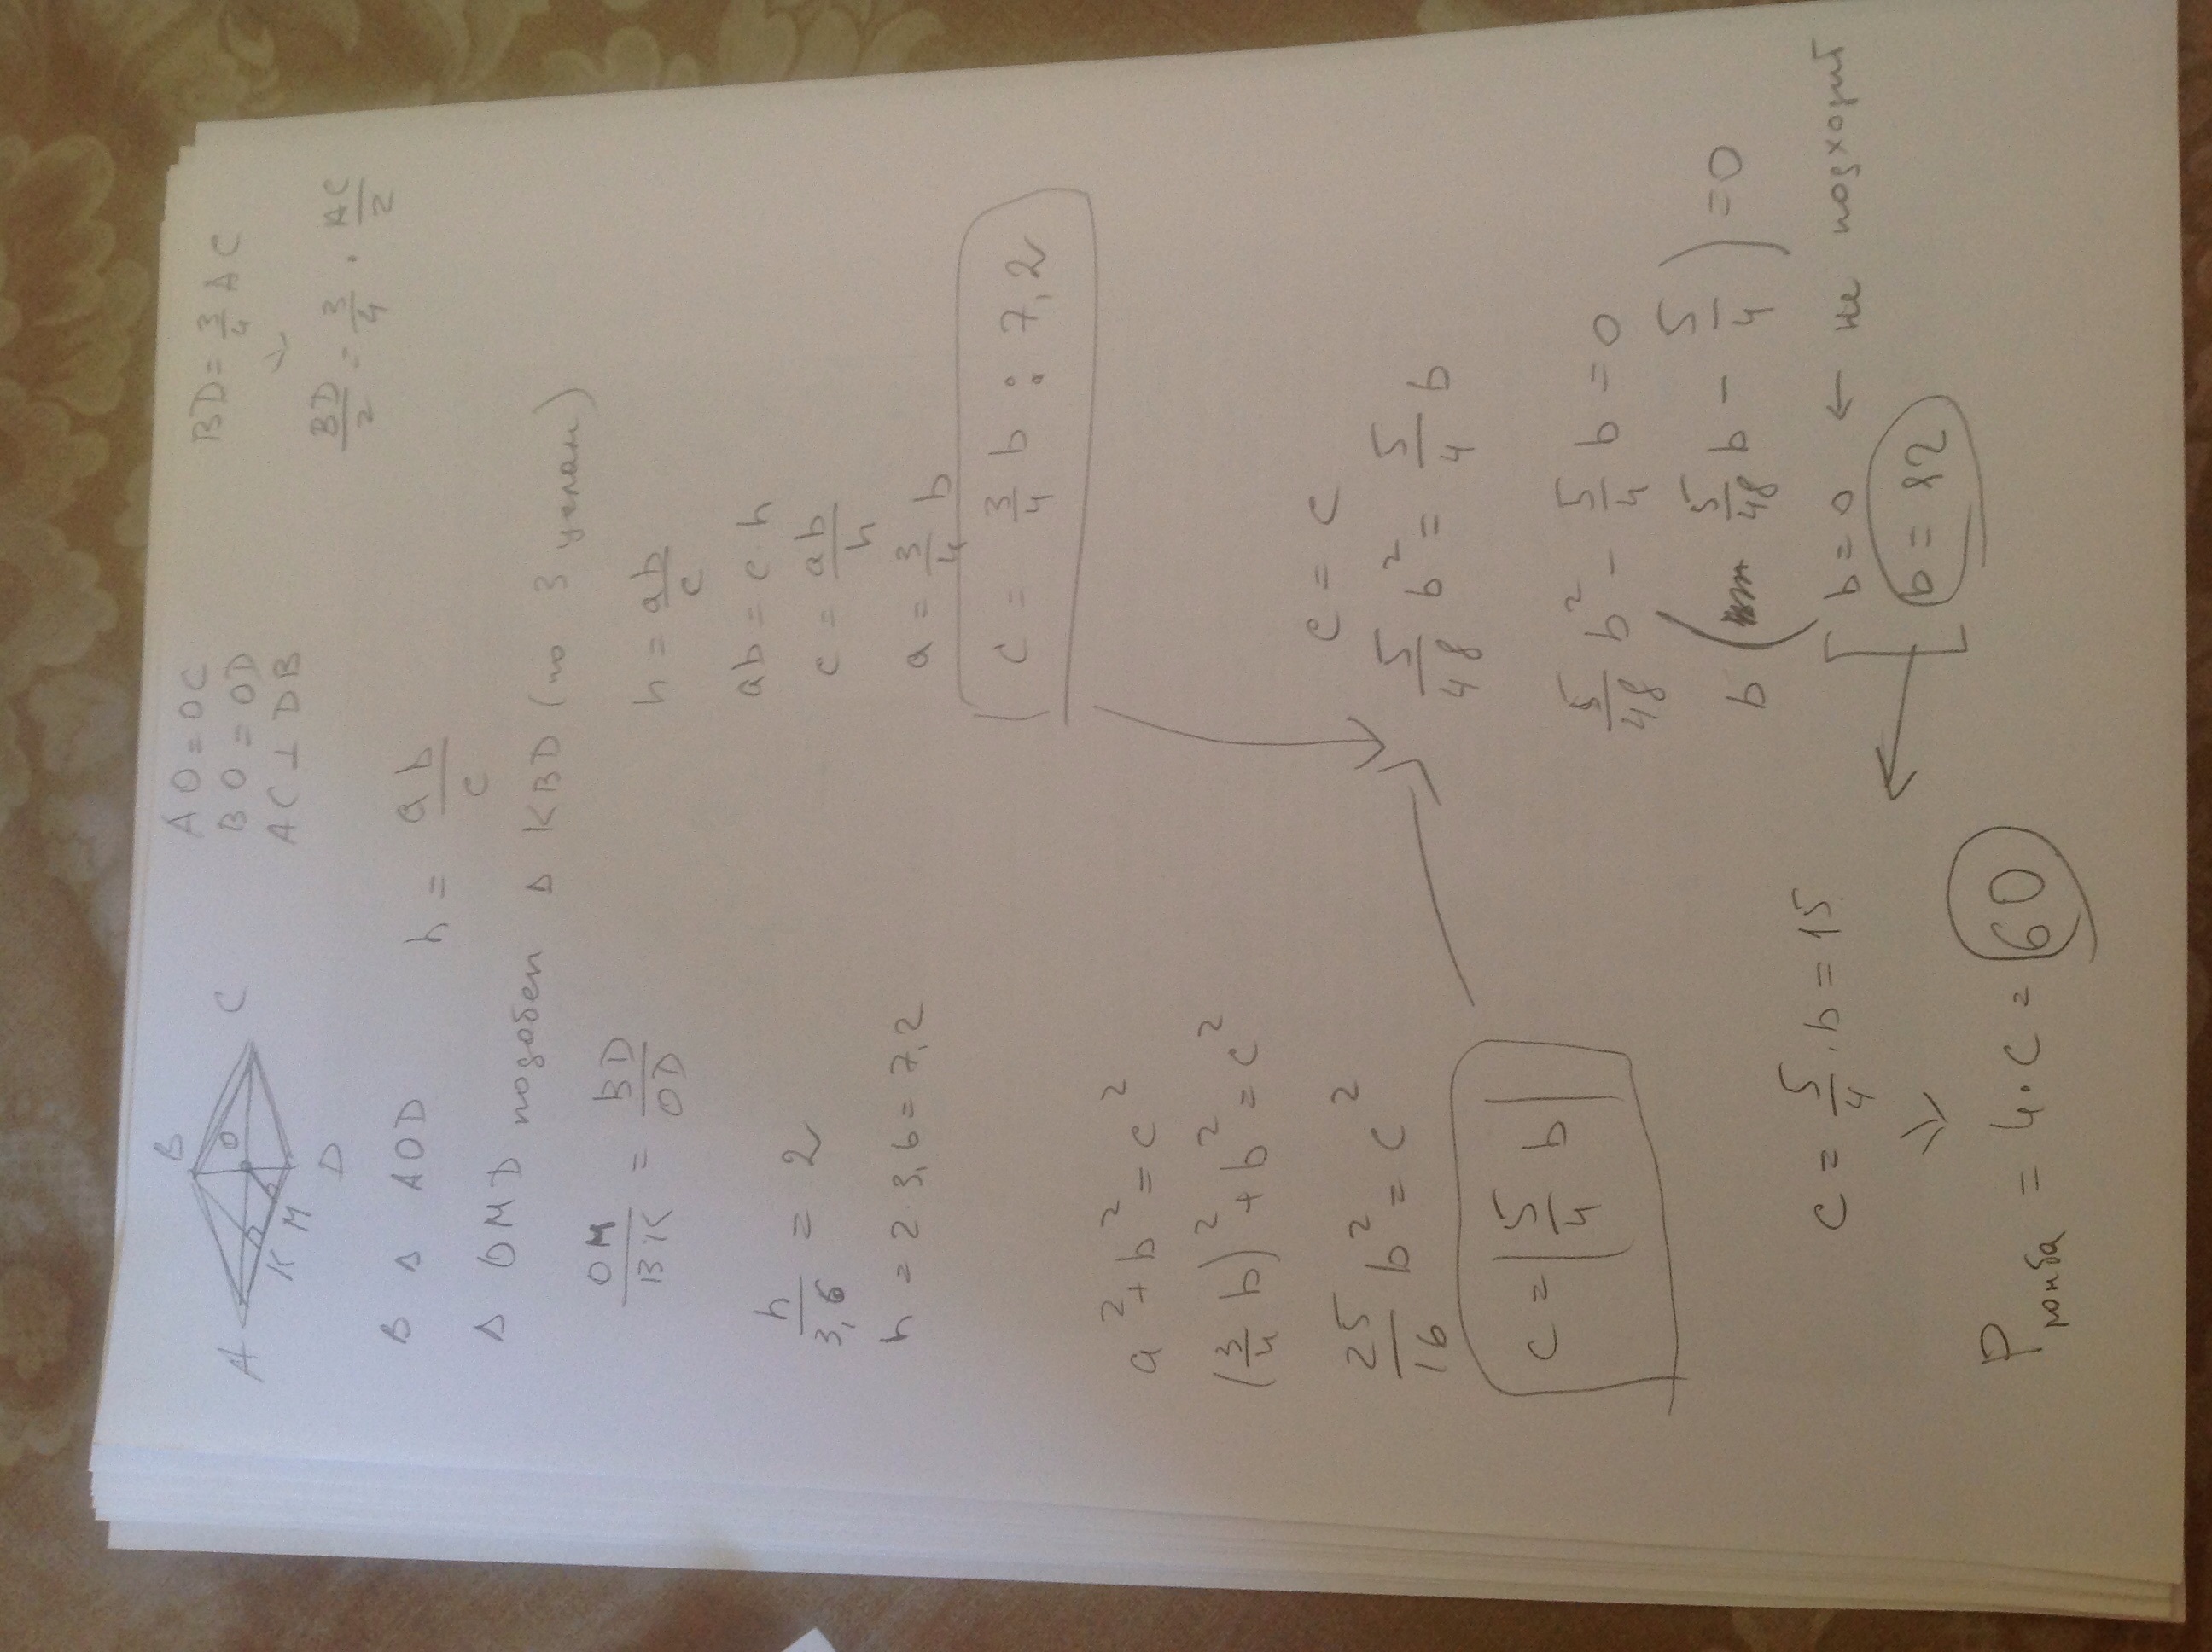 A B C D O K M
AO = OC
BO = OD
AC ⊥ DB
BD = 3/4 AC
⇓
BD/2 = 3/4 · AC/2
В Δ AOD
h = ab/c
Δ OMD подобен Δ KBD (по 3 углам)
OM/BK = BD/OD
h/3,6 = 2
h = 2·3,6 = 7,2
h = ab/c
ab = c h
c = ab/h
a = 3/4 b
c = 3/4 b : 7,2
a² + b² = c²
(3/4 b)² + b² = c²
25/16 b² = c²
c = |5/4 b|
c = c
5/48 b² = 5/4 b
5/48 b² - 5/4 b = 0
b ( 5/48 b - 5/4 ) = 0
b = 0 ← не подходит
b = 12
c = 5/4 · b = 15
⇓
P ромба = 4 · c = 60